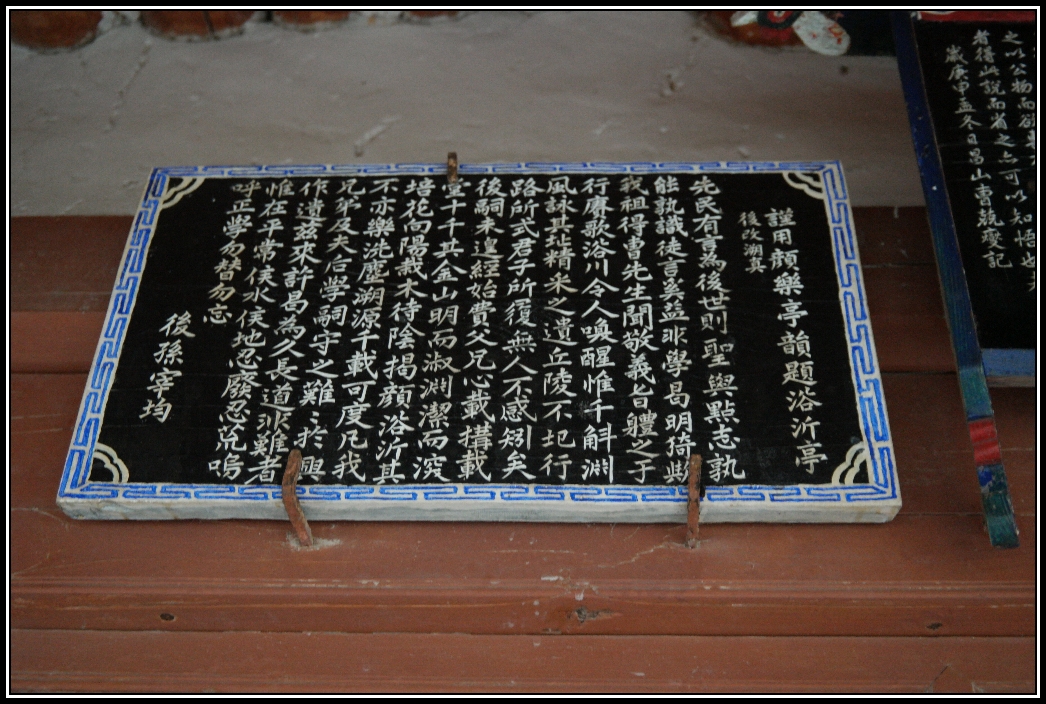 謹用顔樂亭韻題浴沂亭
後改溯真
先民有言為後世則聖與點志孰
能孰識徒言奚益非學曷明猗歟
我祖得曹先生聞敬義旨軆之于
行賡歌浴川令人喚醒惟千斛淵
風詠其址精采之遺丘陵不圯行
路所式君子所履無人不感矧矣
後嗣未遑經始費父兄心載搆載
堂十千其金山明而淑淵潔而深
培花向陽栽木待陰揭顔浴沂其
不亦樂洗塵溯源千載可度凡我
兄弟及夫后學嗣守之難〻於興
作遺玆來許曷為久長道非難者
惟在平常侯水侯地忍廢忍荒嗚
呼正學勿替勿忘
後孫宰均
之以公物而欲
者得此說而省之亦可以知悟
歲庚申孟冬日昌山曺兢燮記